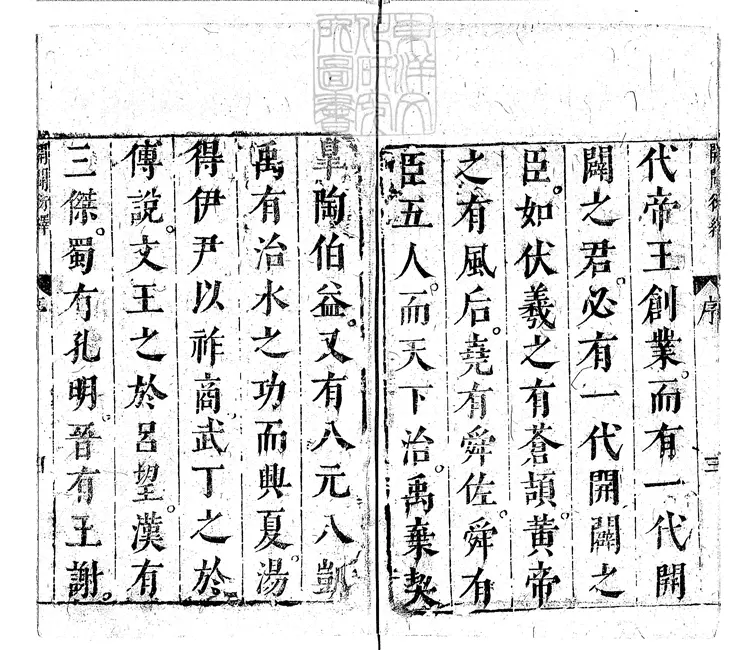 開闢衍繹
序
三
代帝王創業。而有一代開
闢之君。必有一代開闢之
臣。如伏羲之有蒼頡。黃帝
之有風后。堯有舜佐。舜有
臣五人。而天下治。禹棄契
皐陶伯益。又有八元八凱
禹有治水之功而興夏。湯
得伊尹以祚商武丁之於
傅說。文王之於呂望。漢有
三傑。蜀有孔明。晉有王謝。
開闢衍繹
序
東洋文
化研究
所圖書